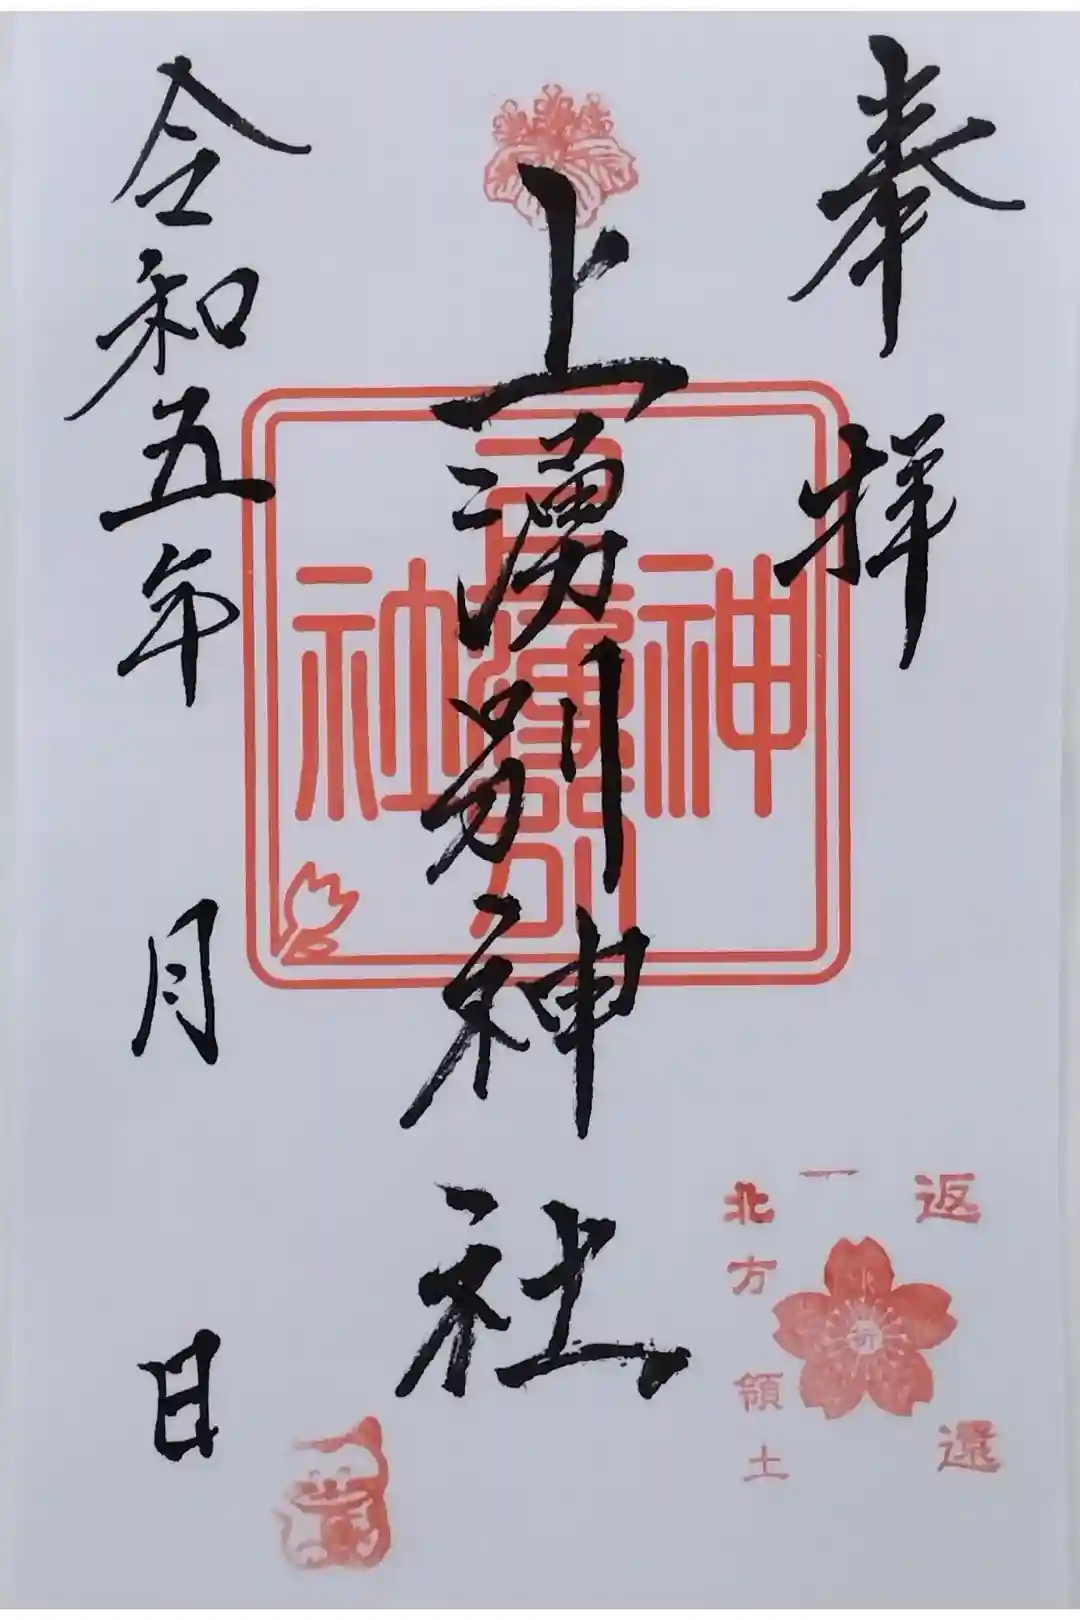 奉拝
上湧別神社
令和五年 月 日
神社
返還
北方領土